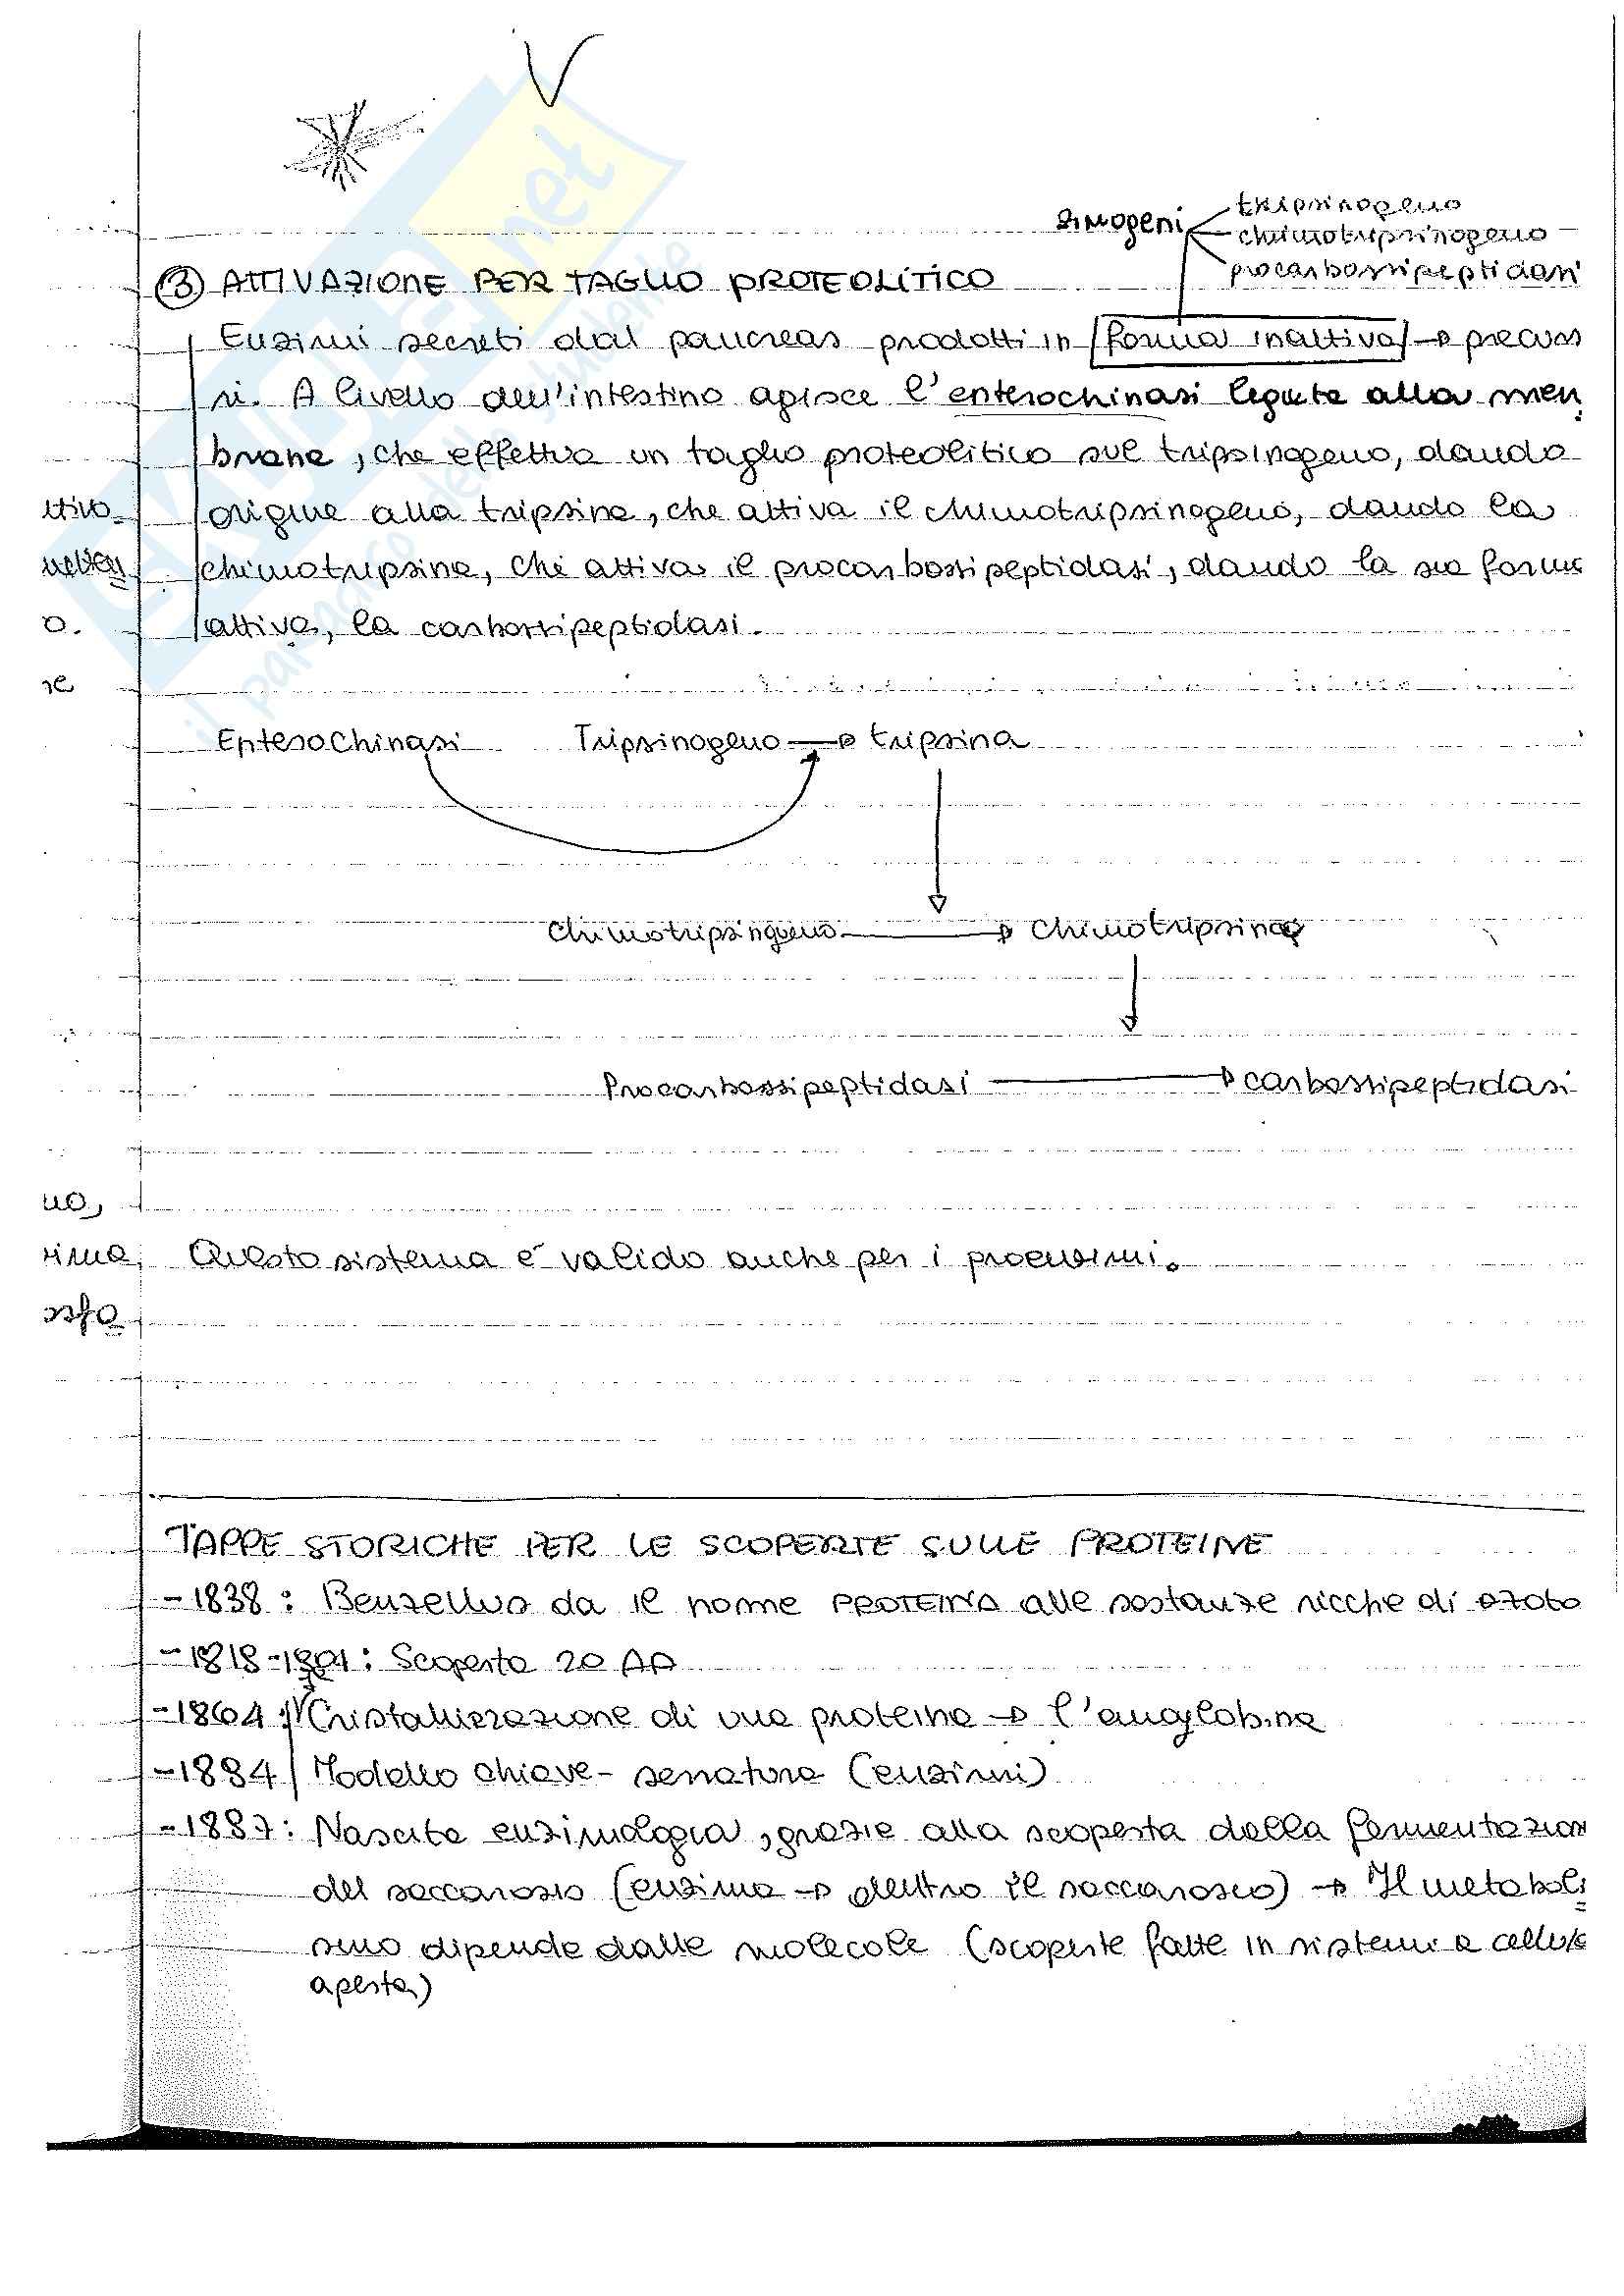 zimogeni
tripsinogeno
chimotripsinogeno
procarbossipeptidasi
③ ATTIVAZIONE PER TAGLIO PROTEOLITICO
Enzimi secreti dal pancreas prodotti in forma inattiva → precurs
si. A livello dell'intestino agisce l'enterochinasi legata alla mem
brana, che effettua un taglio proteolitico sul tripsinogeno, dando
origine alla tripsina, che attiva il chimotripsinogeno, dando la
chimotripsina, che attiva il procarbossipeptidasi, dando la sua forma
attiva, la carbossipeptidasi.
ttivo
o.
re
Enterochinasi Tripsinogeno → tripsina
Chimotripsinogeno → Chimotripsina
Procarbossipeptidasi → carbossipeptidasi
no,
Questo sistema è valido anche per i proenzimi.
TAPPE STORICHE PER LE SCOPERTE SULLE PROTEINE
- 1838 : Berzellius da il nome PROTEINA alle sostanze ricche di azoto
- 1818- : Scoperta 20 AA
- 1864 : Cristallizzazione di una proteina → l'emoglobina
- 1884 Modello chiave - serratura (enzimi)
- 1887 : Nascita enzimologia, grazie alla scoperta della fermentazion
del saccarosio (enzima → dentro il saccarosio) → Il metaboli
smo dipende dalle molecole (scoperte fatte in sistemi a cellula
aperta)
.net